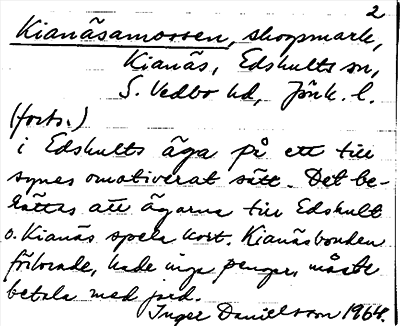 2
Kianäsamossen, skogsmark,
Kianäs, Edshults sn,
S. Vedbo hd, Jönk. l.
(forts.)
i Edshults äga på ett till
synes omotiverat sätt. Det be-
rättas att ägarna till Edshult
o. Kianäs spela kort. Kianäsbonden
förlorade, hade inga pengar, måste
betala med jord.
Inger Danielsson 1964.